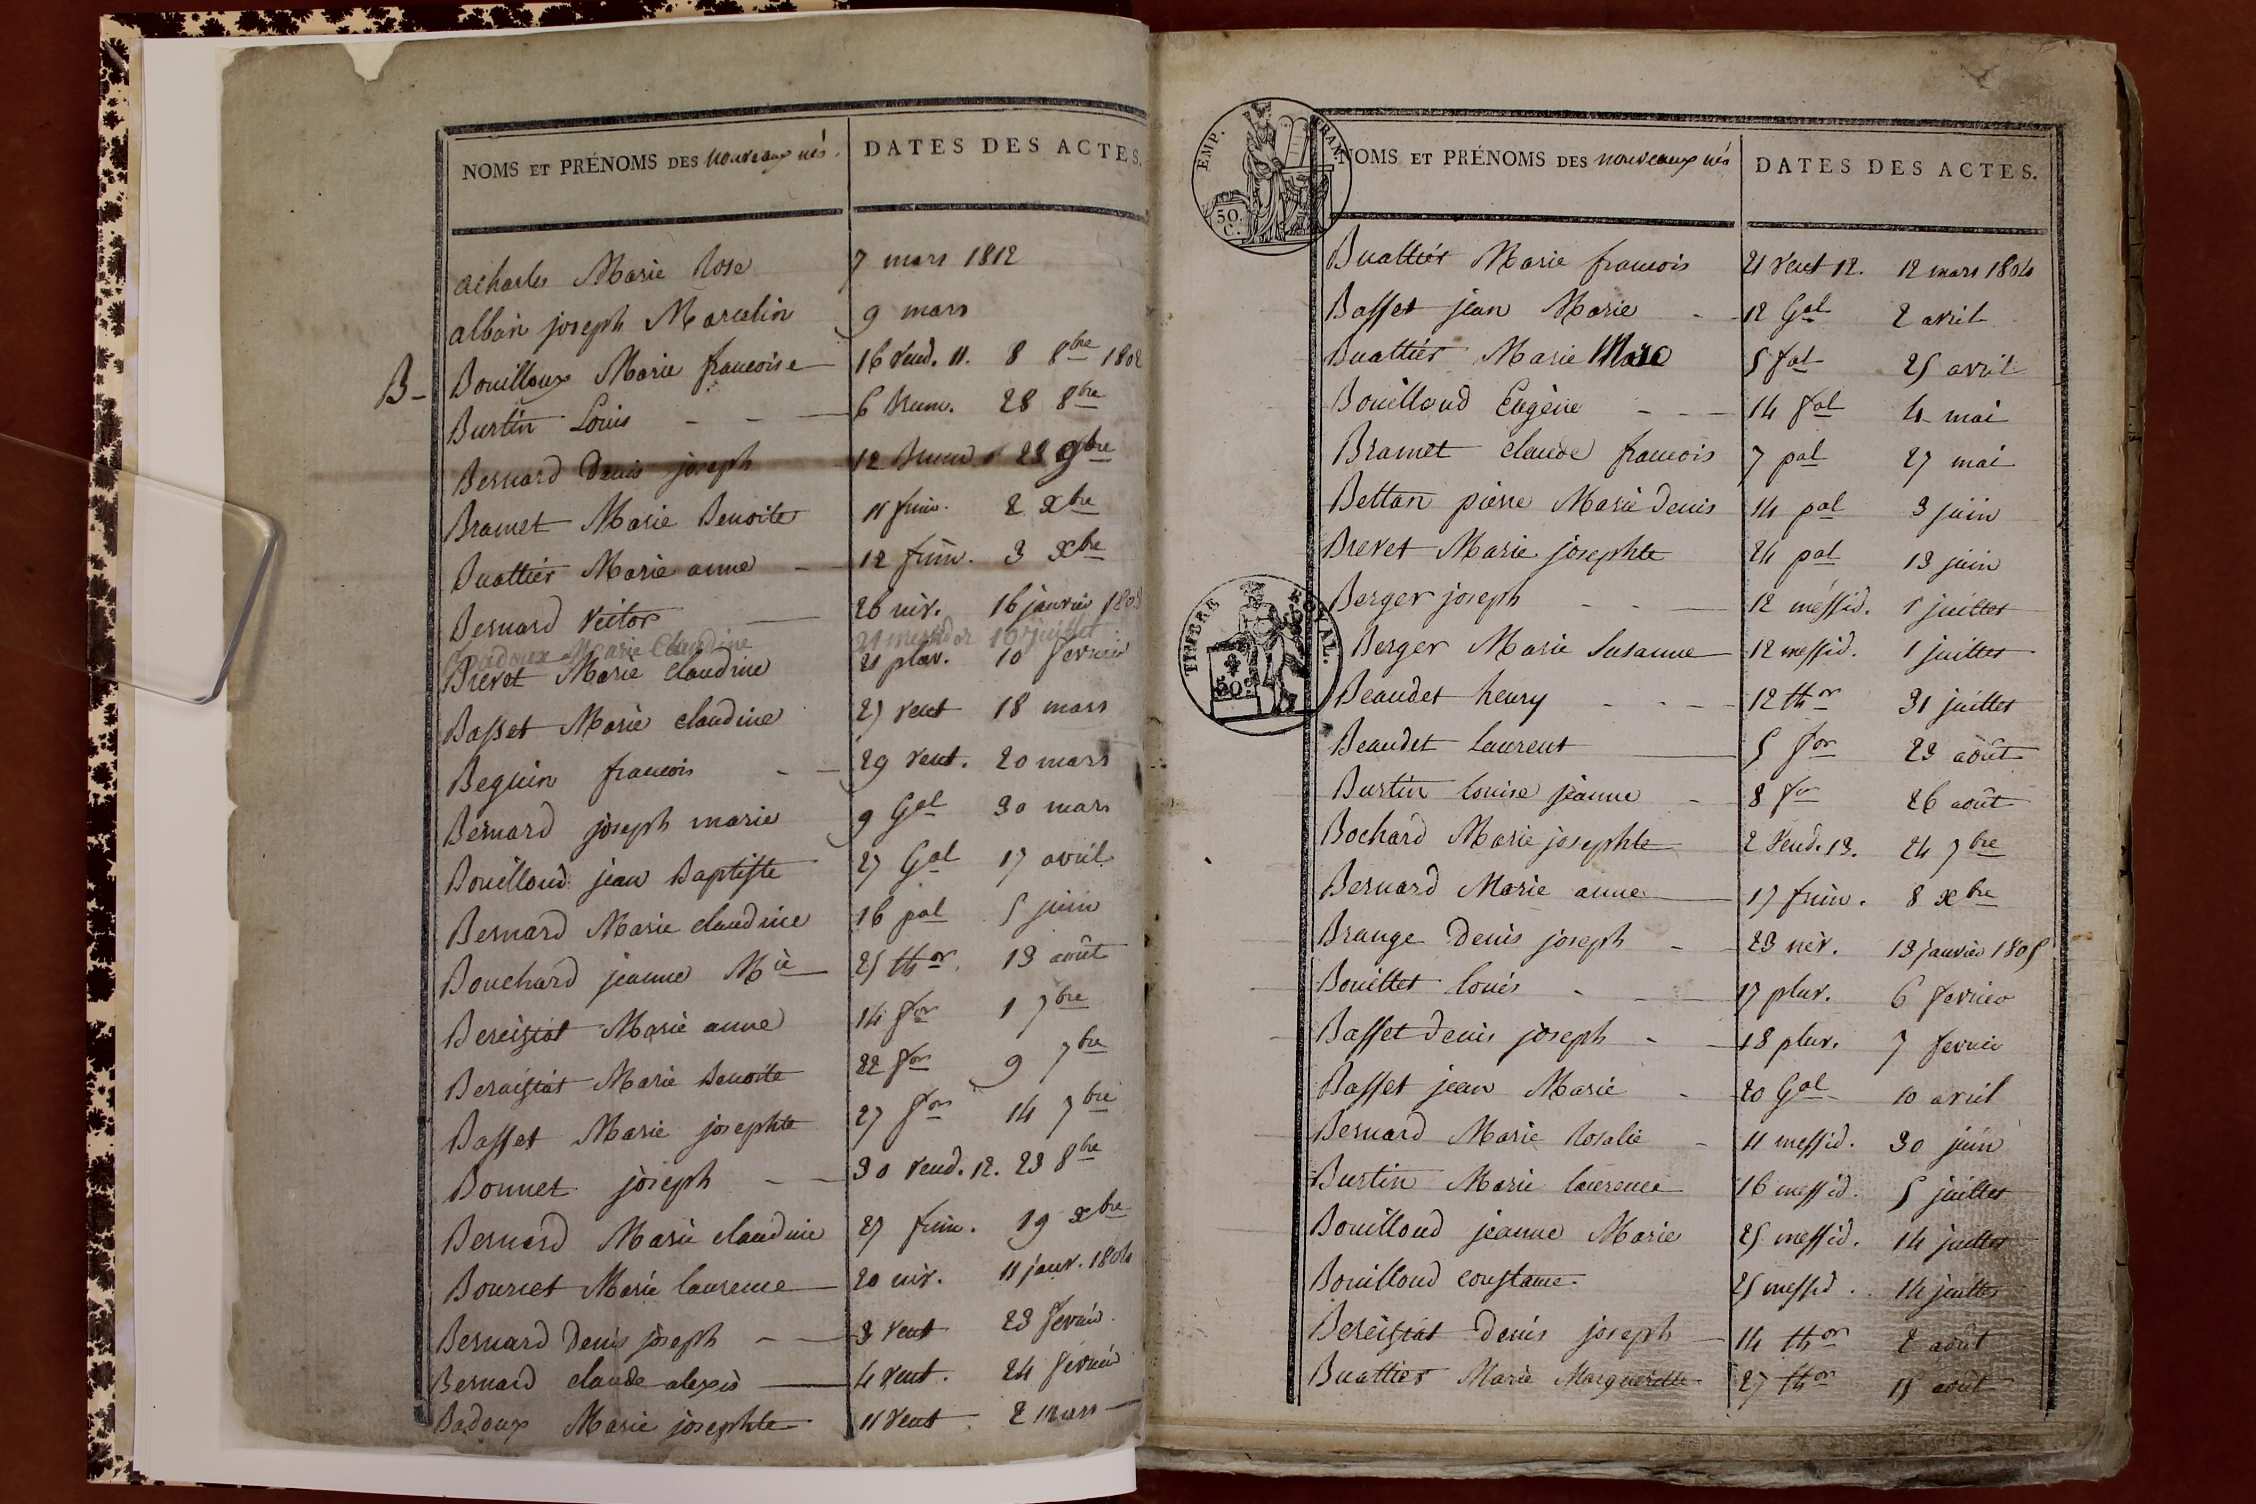 NOMS ET PRÉNOMS DES nouveaux nés. DATES DES ACTES.
acharles Marie Rose 7 mars 1812
alban joseph Marcelin 9 mars
B- Bouilloux Marie francoise 16 Vend. 11. 8 8bre 1802
Burtin Louis 6 Brum. 28 8bre
Bernard Denis joseph 12 Brum 23 9bre
Bramet Marie Benoite 11 frim. 2 Xbre
Buattier Marie anne 12 frim. 3 Xbre
Bernard Victor 26 niv. 16 janvier 1803
Badoux Marie Claudine 21 messidor 10 juillet
Brevet Marie Claudine 21 pluv. 10 fevrier
Basset Marie claudine 27 vent 18 mars
Beguin francois 29 vent. 20 mars
Bernard joseph marie 9 Gal 30 mars
Bouilloud jean Baptiste 27 Gal 17 avril
Bernard Marie claudine 16 pal 5 juin
Bouchard jeanne Mie 25 thor. 13 août
Bereiziat Marie anne 14 for 1 7bre
Beraiziat Marie Benoite 22 for 9 7bre
Basset Marie josephte 27 for 14 7bre
Bonnet joseph 30 vend. 12. 23 8bre
Bernard Marie claudine 27 frim. 19 Xbre
Bourcet Marie laurence 20 niv. 11 janv. 1804
Bernard Denis joseph 3 vent 23 fevrier.
Bernard claude alexis 4 vent. 24 fevrier
Badoux Marie josephte 11 vent 2 mars
EMP. FRAN.
50. C.
NOMS ET PRÉNOMS DES nouveaux nés DATES DES ACTES.
Buattier Marie francois 21 Vent 12. 12 mars 1804
Basset jean Marie 12 Gal 2 avril
Buattier Marie 5 fal 25 avril
Bouilloud Eugène 14 fal 4 mai
Bramet claude francois 7 pal 27 mai
Bettan pierre Marie Denis 14 pal 3 juin
Brevet Marie josephte 24 pal 13 juin
Berger joseph 12 messid. 1 juillet
TIMBRE ROYAL.
50c
Berger Marie Susanne 12 messid. 1 juillet
Beaudet henry 12 thor 31 juillet
Beaudet Laurent 5 for 23 août
Burtin louise jeanne 8 for 26 août
Bochard Marie josephte 2 Vend. 13. 24 7bre
Bernard Marie anne 17 frim. 8 Xbre
Brange Denis joseph 23 niv. 13 janvier 1805
Bouillet louis 17 pluv. 6 fevrier
Basset Denis joseph 18 pluv. 7 fevrier
Basset jean Marie 20 Gal 10 avril
Bernard Marie Rosalie 11 messid. 30 juin
Burtin Marie laurence 16 messid. 5 juillet
Bouilloud jeanne Marie 25 messid. 14 juillet
Bouilloud constance. 25 messid. 14 juillet
Bereiziat Denis joseph 14 thor 2 août
Buattier Marie Marguerite 27 thor 15 août